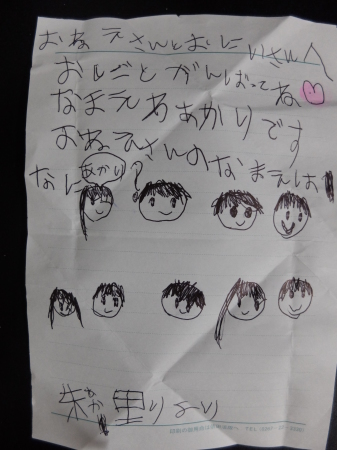 おねえさんとおにいさんへ
おしごとがんばってね
なまえわあかりです
おねえさんのなまえは
なに?
あかり
朱里より
あか